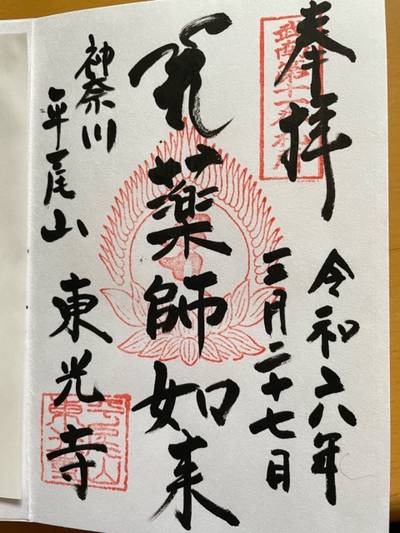 奉拝
令和六年
三月二十七日
薬師如来
神奈川
平尾山
東光寺